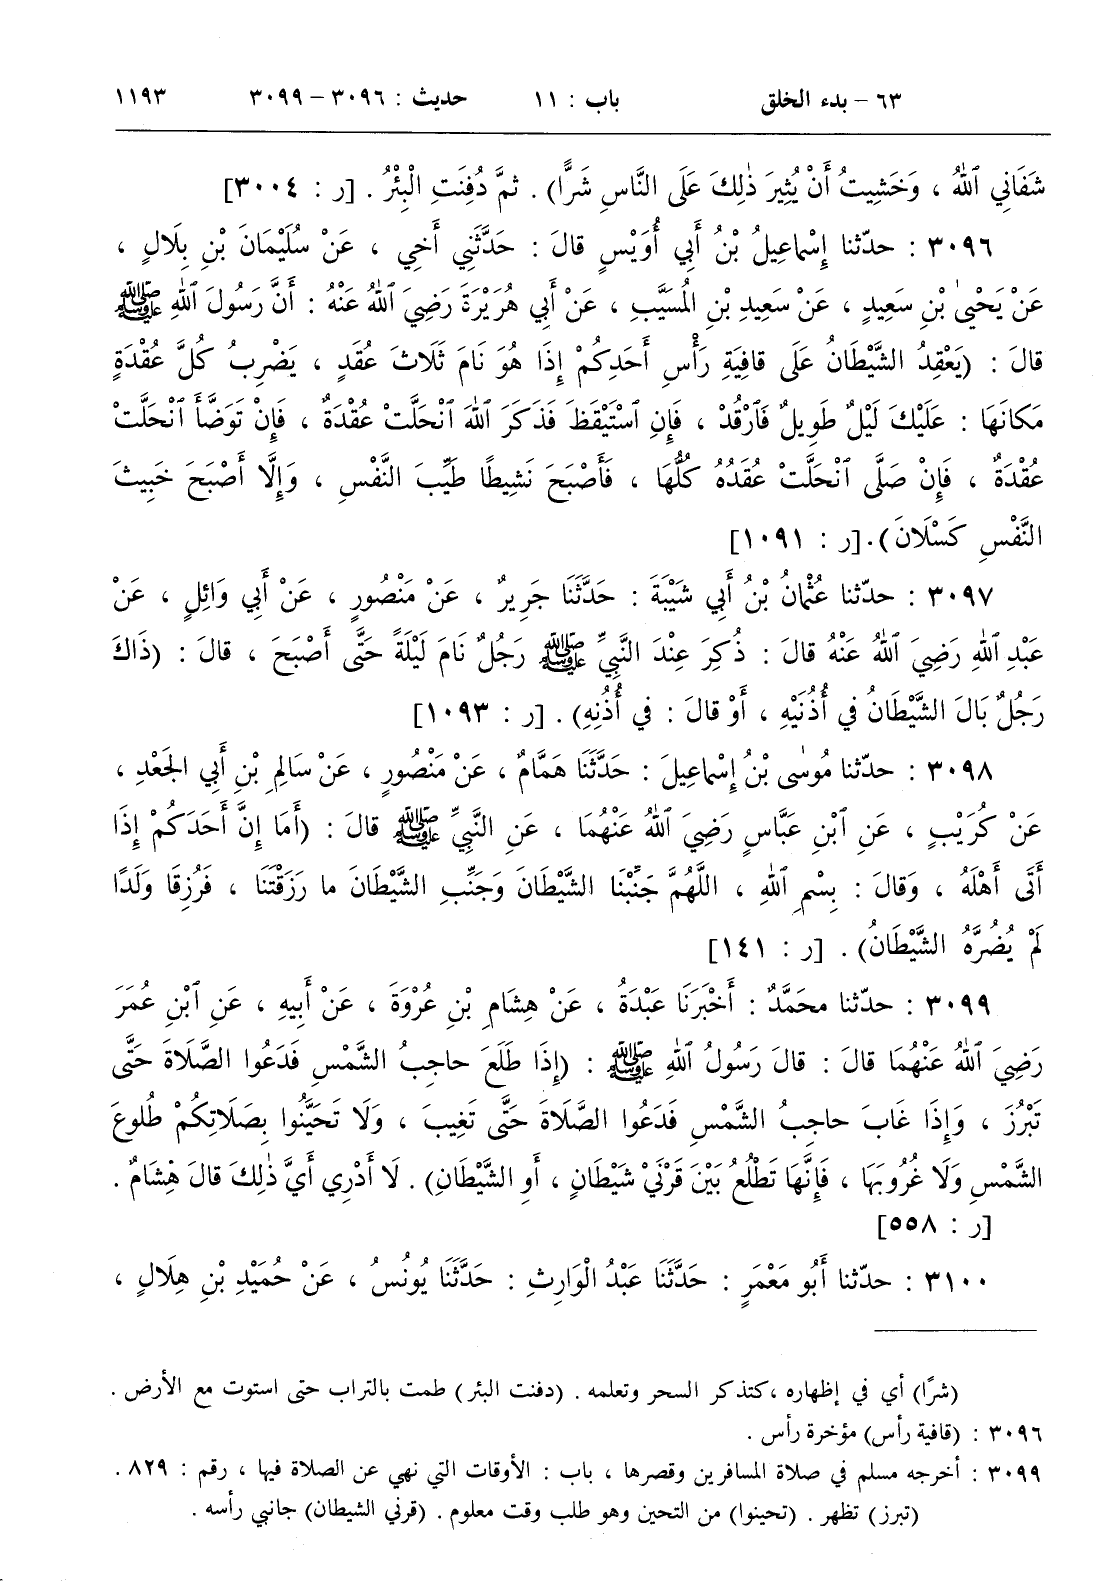 ٦٣ - بدء الخلق باب : ١١ حديث : ٣٠٩٦ - ٣٠٩٩ ١١٩٣
شَفَانِي ٱللهُ ، وَخَشِيتُ أَنْ يُثِيرَ ذٰلِكَ عَلَى النَّاسِ شَرًّا) . ثمَّ دُفِنَتِ الْبِئْرُ . [ر : ٣٠٠٤]
٣٠٩٦ : حدّثنا إِسْماعِيلُ بْنُ أَبِي أُوَيْسٍ قالَ : حَدَّثَنِي أَخِي ، عَنْ سُلَيْمَانَ بْنِ بِلَالٍ ،
عَنْ يَحْيىٰ بْنِ سَعِيدٍ ، عَنْ سَعِيدِ بْنِ المُسَيَّبِ ، عَنْ أَبِي هُرَيْرَةَ رَضِيَ ٱللهُ عَنْهُ : أَنَّ رَسُولَ ٱللهِ ﷺ
قالَ : (يَعْقِدُ الشَّيْطَانُ عَلَى قافِيَةِ رَأْسِ أَحَدِكُمْ إِذَا هُوَ نَامَ ثَلَاثَ عُقَدٍ ، يَضْرِبُ كُلَّ عُقْدَةٍ
مَكانَهَا : عَلَيْكَ لَيْلٌ طَوِيلٌ فَٱرْقُدْ ، فَإِنِ ٱسْتَيْقَظَ فَذَكَرَ ٱللهَ ٱنْحَلَّتْ عُقْدَةٌ ، فَإِنْ تَوَضَّأَ ٱنْحَلَّتْ
عُقْدَةٌ ، فَإِنْ صَلَّى ٱنْحَلَّتْ عُقَدُهُ كُلُّهَا ، فَأَصْبَحَ نَشِيطًا طَيِّبَ النَّفْسِ ، وَإِلَّا أَصْبَحَ خَبِيثَ
النَّفْسِ كَسْلَانَ).[ر : ١٠٩١]
٣٠٩٧ : حدّثنا عُثْمانُ بْنُ أَبِي شَيْبَةَ : حَدَّثَنَا جَرِيرٌ ، عَنْ مَنْصُورٍ ، عَنْ أَبِي وَائِلٍ ، عَنْ
عَبْدِ ٱللهِ رَضِيَ ٱللهُ عَنْهُ قالَ : ذُكِرَ عِنْدَ النَّبِيِّ ﷺ رَجُلٌ نَامَ لَيْلَةً حَتَّى أَصْبَحَ ، قالَ : (ذَاكَ
رَجُلٌ بَالَ الشَّيْطَانُ في أُذُنَيْهِ ، أَوْ قالَ : في أُذُنِهِ) . [ر : ١٠٩٣]
٣٠٩٨ : حدّثنا مُوسٰى بْنُ إِسْماعِيلَ : حَدَّثَنَا هَمَّامٌ ، عَنْ مَنْصُورٍ ، عَنْ سَالِمِ بْنِ أَبِي الجَعْدِ ،
عَنْ كُرَيْبٍ ، عَنِ ٱبْنِ عَبَّاسٍ رَضِيَ ٱللهُ عَنْهُمَا ، عَنِ النَّبِيِّ ﷺ قالَ : (أَمَا إِنَّ أَحَدَكُمْ إِذَا
أَتَى أَهْلَهُ ، وَقالَ : بِسْمِ ٱللهِ ، اللَّهُمَّ جَنِّبْنَا الشَّيْطَانَ وَجَنِّبِ الشَّيْطَانَ ما رَزَقْتَنَا ، فَرُزِقَا وَلَدًا
لَمْ يُضُرَّهُ الشَّيْطَانُ) . [ر : ١٤١]
٣٠٩٩ : حدّثنا محَمَّدٌ : أَخْبَرَنَا عَبْدَةُ ، عَنْ هِشَامِ بْنِ عُرْوَةَ ، عَنْ أَبِيهِ ، عَنِ ٱبْنِ عُمَرَ
رَضِيَ ٱللهُ عَنْهُمَا قالَ : قالَ رَسُولُ ٱللهِ ﷺ : (إِذَا طَلَعَ حاجِبُ الشَّمْسِ فَدَعُوا الصَّلَاةَ حَتَّى
تَبْرُزَ ، وَإِذَا غَابَ حاجِبُ الشَّمْسِ فَدَعُوا الصَّلَاةَ حَتَّى تَغِيبَ ، وَلَا تَحَيَّنُوا بِصَلَاتِكُمْ طُلوعَ
الشَّمْسِ وَلَا غُرُوبَهَا ، فَإِنَّهَا تَطْلُعُ بَيْنَ قَرْنَيْ شَيْطَانٍ ، أَوِ الشَّيْطَانِ) . لَا أَدْرِي أَيَّ ذٰلِكَ قالَ هِشَامٌ .
[ر : ٥٥٨]
٣١٠٠ : حدّثنا أَبُو مَعْمَرٍ : حَدَّثَنَا عَبْدُ الْوَارِثِ : حَدَّثَنَا يُونُسُ ، عَنْ حُمَيْدِ بْنِ هِلَالٍ ،
(شرًا) أي في إظهاره ، كتذكر السحر وتعلمه . (دفنت البئر) طمت بالتراب حتى استوت مع الأرض .
٣٠٩٦ : (قافية رأس) مؤخرة رأس .
٣٠٩٩ : أخرجه مسلم في صلاة المسافرين وقصرها ، باب : الأوقات التي نهي عن الصلاة فيها ، رقم : ٨٢٩ .
(تبرز) تظهر . (تحينوا) من التحين وهو طلب وقت معلوم . (قرني الشيطان) جانبي رأسه .